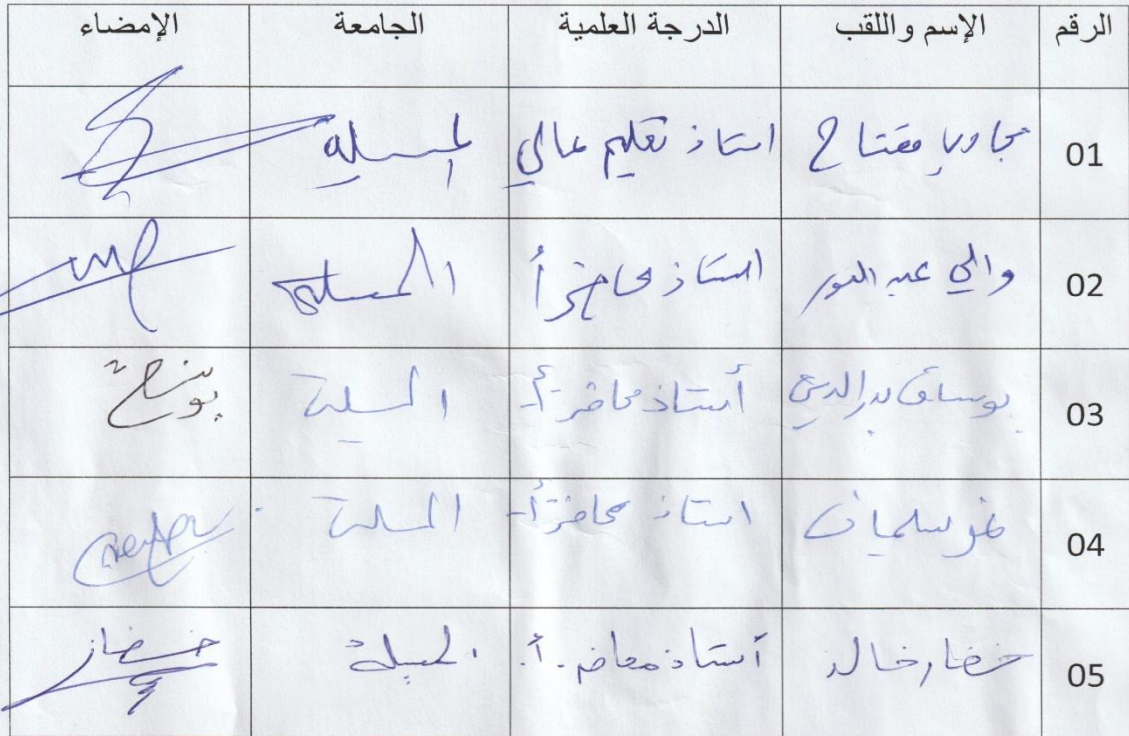 الرقم الإسم واللقب الدرجة العلمية الجامعة الإمضاء
01 مفتاح استاذ تعليم عالي المسيلة
02 والي عبد النور استاذ محاضر أ المسيلة
03 بوساق بدر الدين أستاذ محاضر -أ- المسيلة
04 سليمان استاذ محاضر أ- المسيلة
05 خضار خالد أستاذ محاضر .أ. المسيلة خضار